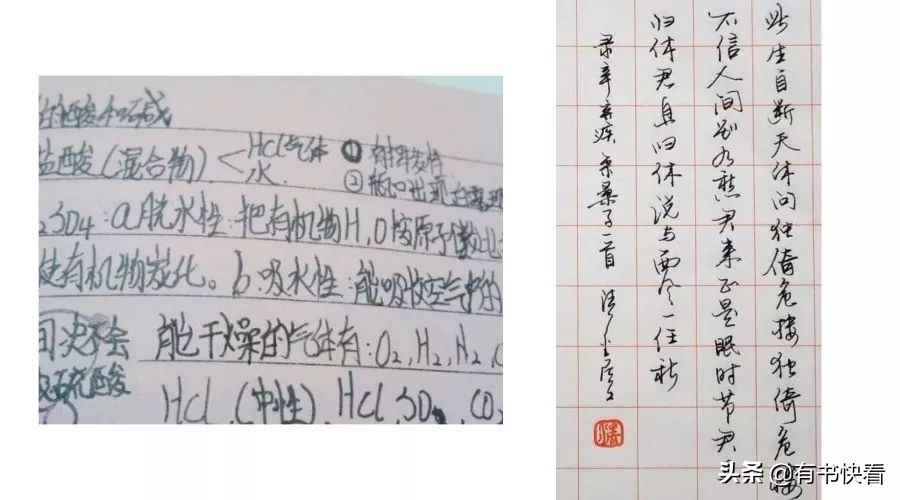 的酸和碱
盐酸(混合物)< HCl气体 ① 有挥发性
水 ② 瓶口出现白雾
2SO4:a.脱水性:把有机物H、O按原子个数比
使有机物炭化。b.吸水性:能吸收空气中的
能干燥的气体有:O2,H2,N2
硫酸 HCl (中性) HCl SO2 CO2
此生自断天休问独倚危楼独倚危楼
不信人间别有愁君来正是眠时节君且
归休君且归休说与西风一任秋
录辛弃疾采桑子一首
头条 @有书快看